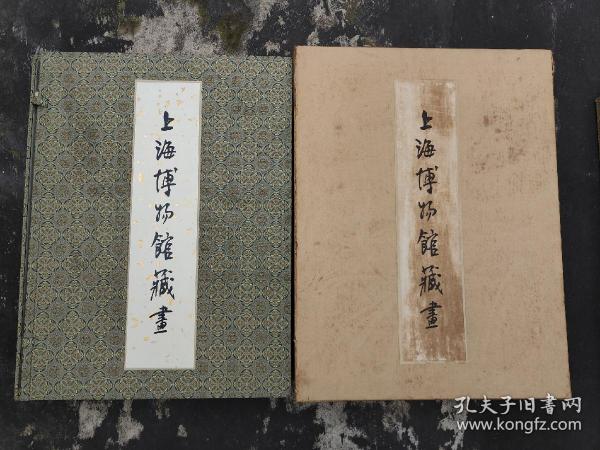 上海博物館藏畫
上海博物館藏畫
孔夫子旧書网
www.kongfz.com